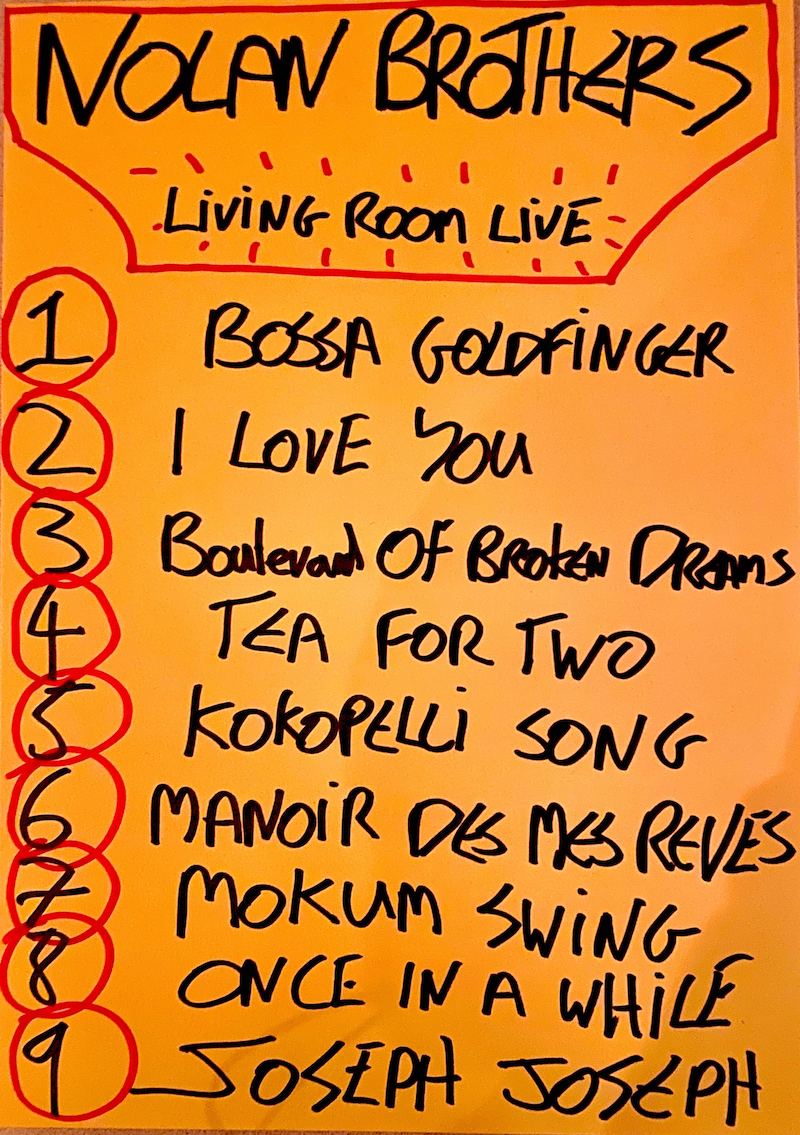 NOLAN BROTHERS
LiViNG ROOM LiVE
1 BOSSA GOLDFiNGER
2 I LOVE YOU
3 Boulevard OF BROKEN DREAMS
4 TEA FOR TWO
5 KOKOPELLi SONG
6 MANOiR DES MES REVES
7 MOKUM SWiNG
8 ONCE IN A WHiLE
9 JOSEPH JOSEPH